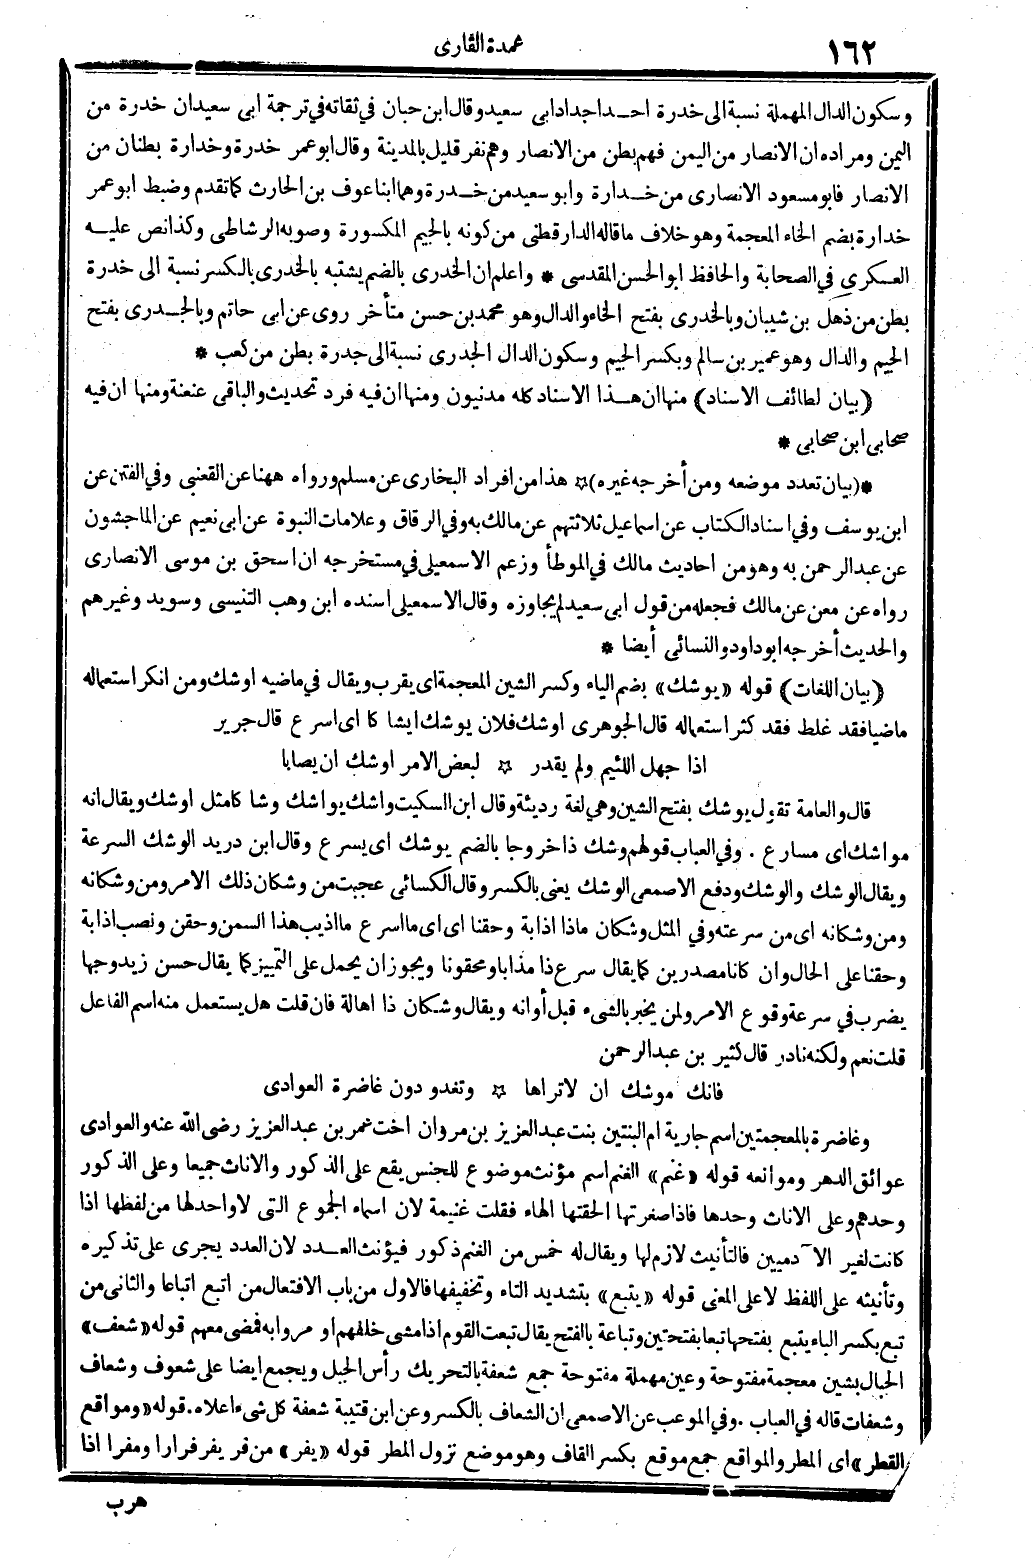 ١٦٢
عمدة القارى
وسكون الدال المهملة نسبة الى خدرة احد اجداد ابى سعيد وقال ابن حبان في ثقاته في ترجمة ابى سعيد ان خدرة من
اليمن ومراده ان الانصار من اليمن فهم بطن من الانصار وهم نفر قليل بالمدينة وقال ابو عمر خدرة وخدارة بطنان من
الانصار فابو مسعود الانصارى من خدارة وابو سعيد من خدرة وهما ابنا عوف بن الحارث كما تقدم وضبط ابو عمر
خدارة بضم الخاء المعجمة وهو خلاف ما قاله الدار قطنى من كونه بالجيم المكسورة وصوبه الرشاطى وكذا نص عليه
العسكرى في الصحابة والحافظ ابو الحسن المقدسى * واعلم ان الخدرى بالضم يشتبه بالخدرى بالكسر نسبة الى خدرة
بطن من ذهل بن شيبان وبالخدرى بفتح الخاء والدال وهو محمد بن حسن متأخر روى عن ابى حاتم وبالجدرى بفتح
الجيم والدال وهو عمير بن سالم وبكسر الجيم وسكون الدال الجدرى نسبة الى جدرة بطن من كعب *
(بيان لطائف الاسناد) منها ان هذا الاسناد كله مدنيون ومنها ان فيه فرد تحديث والباقى عنعنة ومنها ان فيه
صحابى ابن صحابى *
*(بيان تعدد موضعه ومن أخرجه غيره)☆ هذا من افراد البخارى عن مسلم ورواه ههنا عن القعنبى وفي الفتن عن
ابن يوسف وفي اسناد الكتاب عن اسماعيل ثلاثتهم عن مالك به وفي الرقاق وعلامات النبوة عن ابى نعيم عن الماجشون
عن عبد الرحمن به وهو من احاديث مالك في الموطأ وزعم الاسمعيلى في مستخرجه ان اسحق بن موسى الانصارى
رواه عن معن عن مالك فجعله من قول ابى سعيد لم يجاوزه وقال الاسمعيلى اسنده ابن وهب التنيسى وسويد وغيرهم
والحديث أخرجه ابو داود والنسائى أيضا *
(بيان اللغات) قوله «يوشك» بضم الياء وكسر الشين المعجمة اى يقرب ويقال في ماضيه اوشك ومن انكر استعماله
ماضيا فقد غلط فقد كثر استعماله قال الجوهرى اوشك فلان يوشك ايشا كا اى اسرع قال جرير
اذا جهل اللئيم ولم يقدر ☆ لبعض الامر اوشك ان يصابا
قال والعامة تقول يوشك بفتح الشين وهى لغة رديئة وقال ابن السكيت واشك يواشك وشا كا مثل اوشك ويقال انه
مواشك اى مسارع . وفي العباب قولهم وشك ذا خروجا بالضم يوشك اى يسرع وقال ابن دريد الوشك السرعة
ويقال الوشك والوشك ودفع الاصمعى الوشك يعنى بالكسر وقال الكسائى عجبت من وشكان ذلك الامر ومن وشكانه
ومن وشكانه اى من سرعته وفي المثل وشكان ماذا اذابة وحقنا اى اى ما اسرع ما اذيب هذا السمن وحقن ونصب اذابة
وحقنا على الحال وان كانا مصدرين كما يقال سرع ذا مذابا ومحقونا ويجوز ان يحمل على التمييز كما يقال حسن زيد وجها
يضرب في سرعة وقوع الامر ولمن يخبر بالشىء قبل أوانه ويقال وشكان ذا اهالة فان قلت هل يستعمل منه اسم الفاعل
قلت نعم ولكنه نادر قال كثير بن عبد الرحمن
فانك موشك ان لا تراها ☆ وتغدو دون غاضرة العوادى
وغاضرة بالمعجمتين اسم جارية ام البنتين بنت عبد العزيز بن مروان اخت عمر بن عبد العزيز رضى الله عنه والعوادى
عوائق الدهر وموانعه قوله «غنم» الغنم اسم مؤنث موضوع للجنس يقع على الذكور والاناث جميعا وعلى الذكور
وحدهم وعلى الاناث وحدها فاذا صغرتها الحقتها الهاء فقلت غنيمة لان اسماء الجموع التى لا واحد لها من لفظها اذا
كانت لغير الآدميين فالتأنيث لازم لها ويقال له خمس من الغنم ذكور فيؤنث العدد لان العدد يجرى على تذكيره
وتأنيثه على اللفظ لا على المعنى قوله «يتبع» بتشديد التاء وتخفيفها فالاول من باب الافتعال من اتبع اتباعا والثانى من
تبع بكسر الباء يتبع بفتحها تبعا بفتحتين وتباعة بالفتح يقال تبعت القوم اذا مشى خلفهم او مروا به فمضى معهم قوله «شعف»
الجبال بشين معجمة مفتوحة وعين مهملة مفتوحة جمع شعفة بالتحريك رأس الجبل ويجمع ايضا على شعوف وشعاف
وشعفات قاله في العباب . وفي الموعب عن الاصمعى ان الشعاف بالكسر وعن ابن قتيبة شعفة كل شىء اعلاه . قوله «ومواقع
القطر» اى المطر والمواقع جمع موقع بكسر القاف وهو موضع نزول المطر قوله «يفر» من فر يفر فرارا ومفرا اذا
هرب